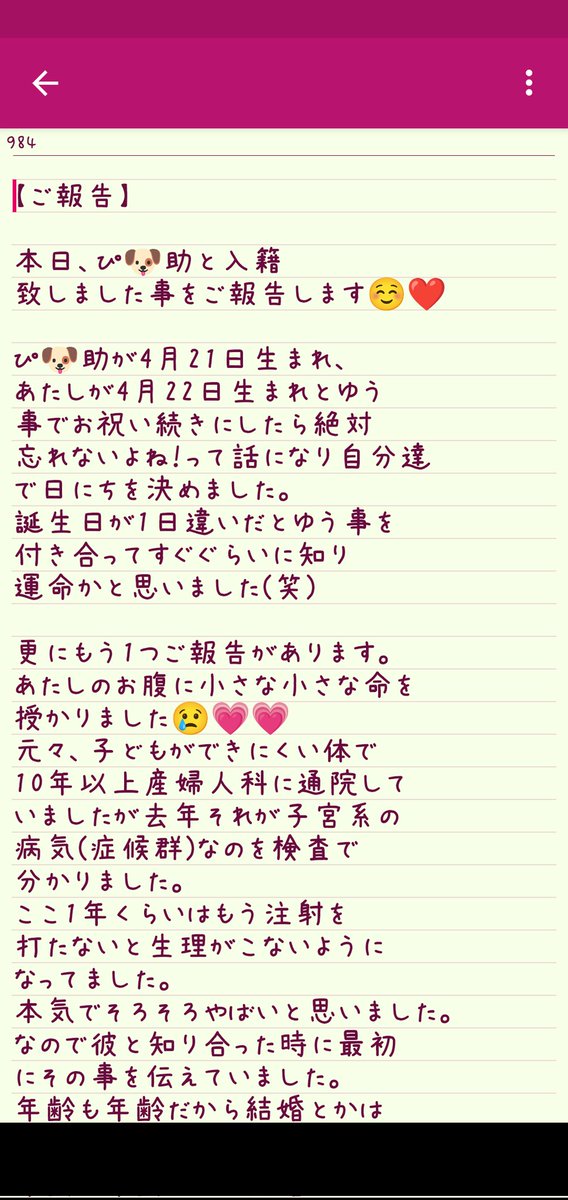 984
【ご報告】
本日、ぴ🐶助と入籍
致しました事をご報告します☺️❤️
ぴ🐶助が4月21日生まれ、
あたしが4月22日生まれとゆう
事でお祝い続きにしたら絶対
忘れないよね!って話になり自分達
で日にちを決めました。
誕生日が1日違いだとゆう事を
付き合ってすぐぐらいに知り
運命かと思いました(笑)
更にもう1つご報告があります。
あたしのお腹に小さな小さな命を
授かりました😢💗💗
元々、子どもができにくい体で
10年以上産婦人科に通院して
いましたが去年それが子宮系の
病気(症候群)なのを検査で
分かりました。
ここ1年くらいはもう注射を
打たないと生理がこないように
なってました。
本気でそろそろやばいと思いました。
なので彼と知り合った時に最初
にその事を伝えていました。
年齢も年齢だから結婚とかは